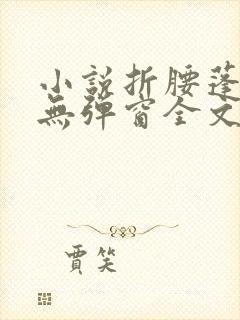 小說折腰蓬
無彈窗全文
賈笑